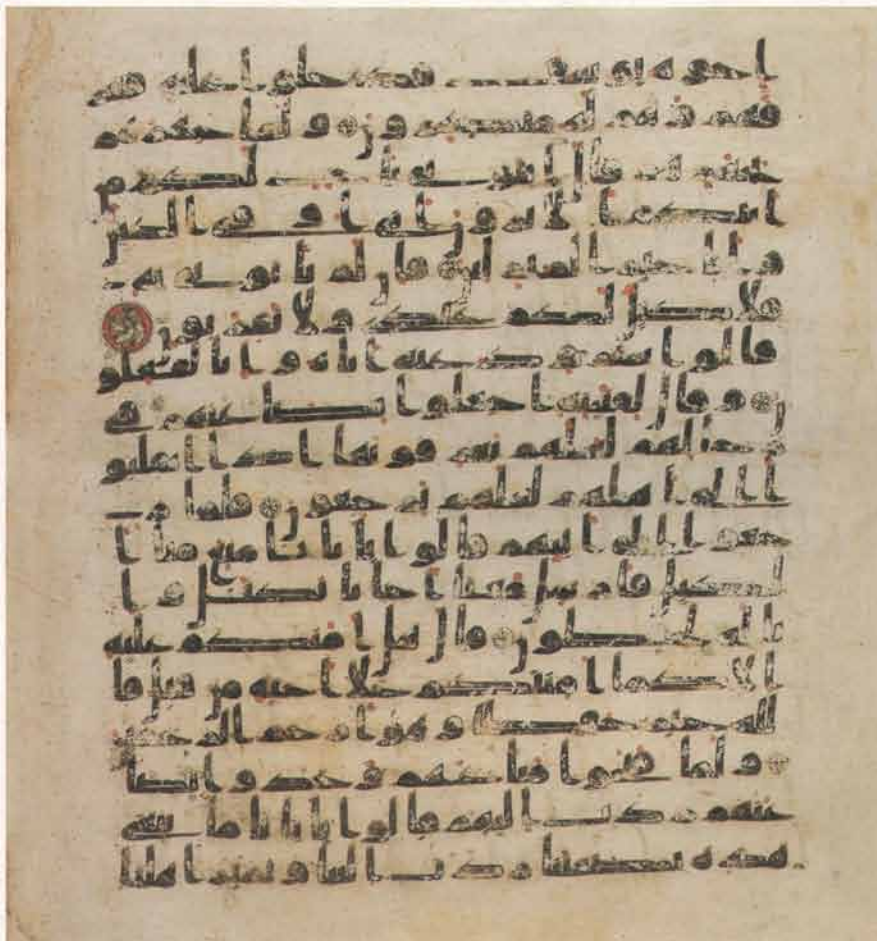 اخوة يوسف فدخلوا عليه فعر
فهم وهم له منكرون ولما جهزهم
بجهازهم قال ائتوني باخ لكم م
ن ابيكم الا ترون اني اوفي الكيل
وانا خير المنزلين فان لم تاتوني به
فلا كيل لكم عندي ولا تقربون
قالوا سنرود عنه اباه وانا لفعلو
ن وقال لفتينه اجعلوا بضعتهم في
رحالهم لعلهم يعرفونها اذا انقلبو
ا الى اهلهم لعلهم يرجعون فلما ر
جعوا الى ابيهم قالوا يابانا منع منا ا
لكيل فارسل معنا اخانا نكتل وا
نا له لحفظون قال هل امنكم عليه
الا كما امنتكم على اخيه من قبل فا
لله خير حفظا وهو ارحم الرحمين
ولما فتحوا متعهم وجدوا بضا
عتهم ردت اليهم قالوا يابانا ما نبغي
هذه بضعتنا ردت الينا ونمير اهلنا